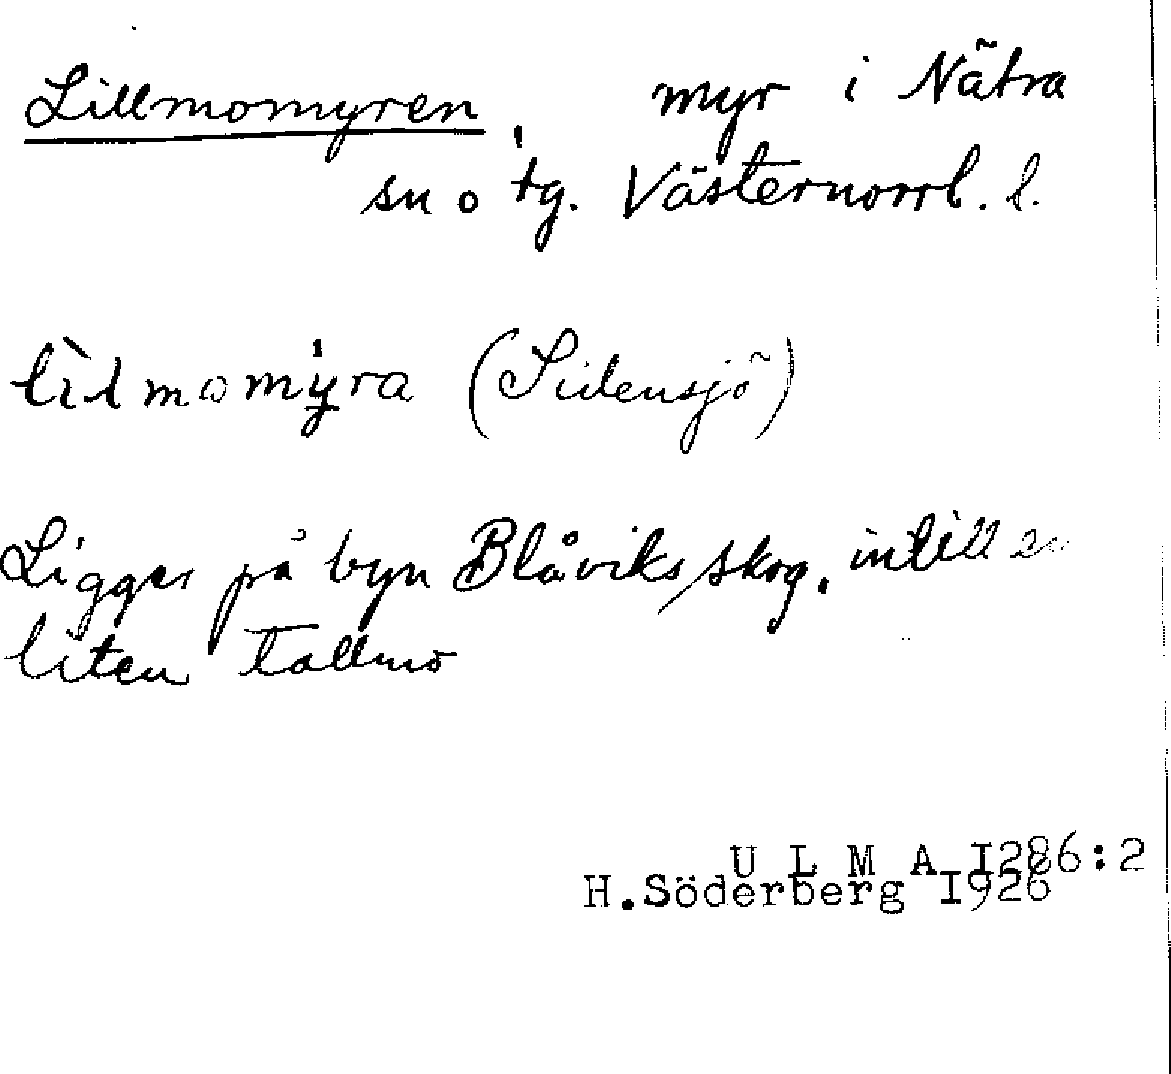 Lillmomyren, myr i Nätra
sn o tg. Västernorrl. l.
lìlmomy̍ra (Sidensjö)
Ligger på byn Blåviks skog, intill en
liten tallmo
U L M A I286:2
H.Söderberg I926